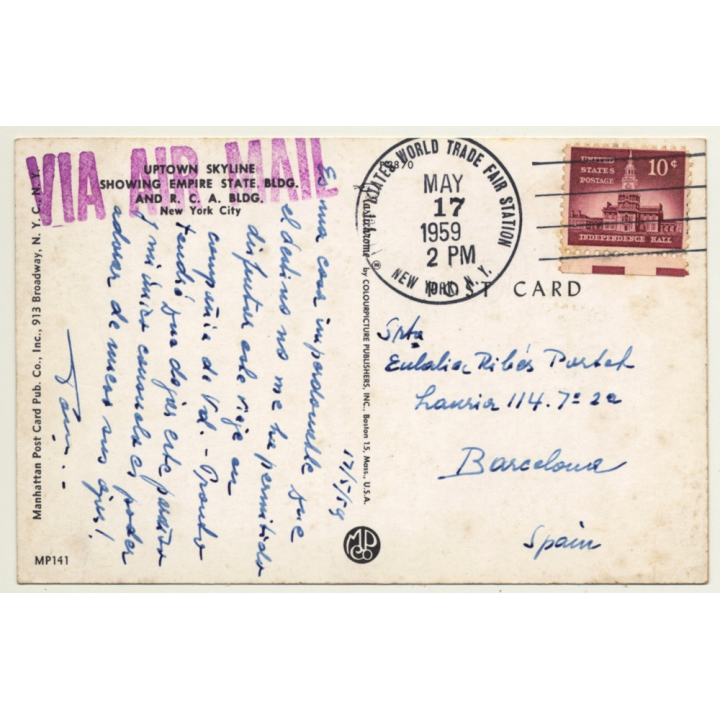 VIA AIR MAIL
UPTOWN SKYLINE
SHOWING EMPIRE STATE BLDG.
AND R. C. A. BLDG.
New York City
17/5/59
Es una cosa imperdonable que
el destino no me ha permitido
disfrutar este viaje en
compañia de Vd. - Pronto
tendré que dejar este paraiso
y mi único consuelo es poder
adorar de nuevo sus ojos!
Manhattan Post Card Pub. Co., Inc., 913 Broadway, N. Y. C., N. Y.
MP141
P28870
Plastichrome ® by COLOURPICTURE PUBLISHERS, INC., Boston 15, Mass., U.S.A.
MP
CO
STATES WORLD TRADE FAIR STATION
MAY
17
1959
2 PM
NEW YORK, N.Y.
UNITED
STATES
POSTAGE
10¢
INDEPENDENCE HALL
POST CARD
Srta
Eulalia Ribés Portet
Lauria 114. 7º 2a
Barcelona
Spain